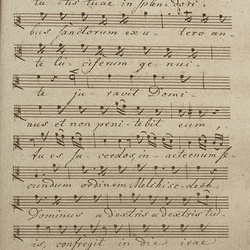 tu - tis tuae in splen - dori -
bus sanctorum ex u - tero an -
te lu - ciferum ge - nui -
te ju - ravit Domi -
nus et non peni - tebit eum,
tu es sa - cerdos, in aeternum se -
cundum ordinem Melchise - dech.
Dominus a dextris a dextris tu -
is, confregit in die irae